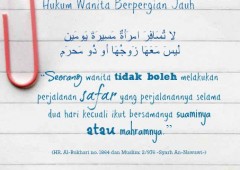 Hukum Wanita Berpergian Jauh
لا تُسَافِرُ امْرَأَةٌ مَسِيْرَةَ يَوْمَيْنِ
لَيْسَ مَعَهَا زَوْجُهَا أَوْ ذُو مَحْرَمٍ
“Seorang wanita tidak boleh melakukan
perjalanan safar yang perjalanannya selama
dua hari kecuali ikut bersamanya suaminya
atau mahramnya.”
(HR. Al-Bukhari no. 1864 dan Muslim 2/976 -Syarh An-Nawawi-)